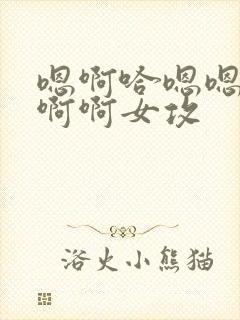 嗯啊哈嗯嗯
啊啊女攻
浴火小熊猫